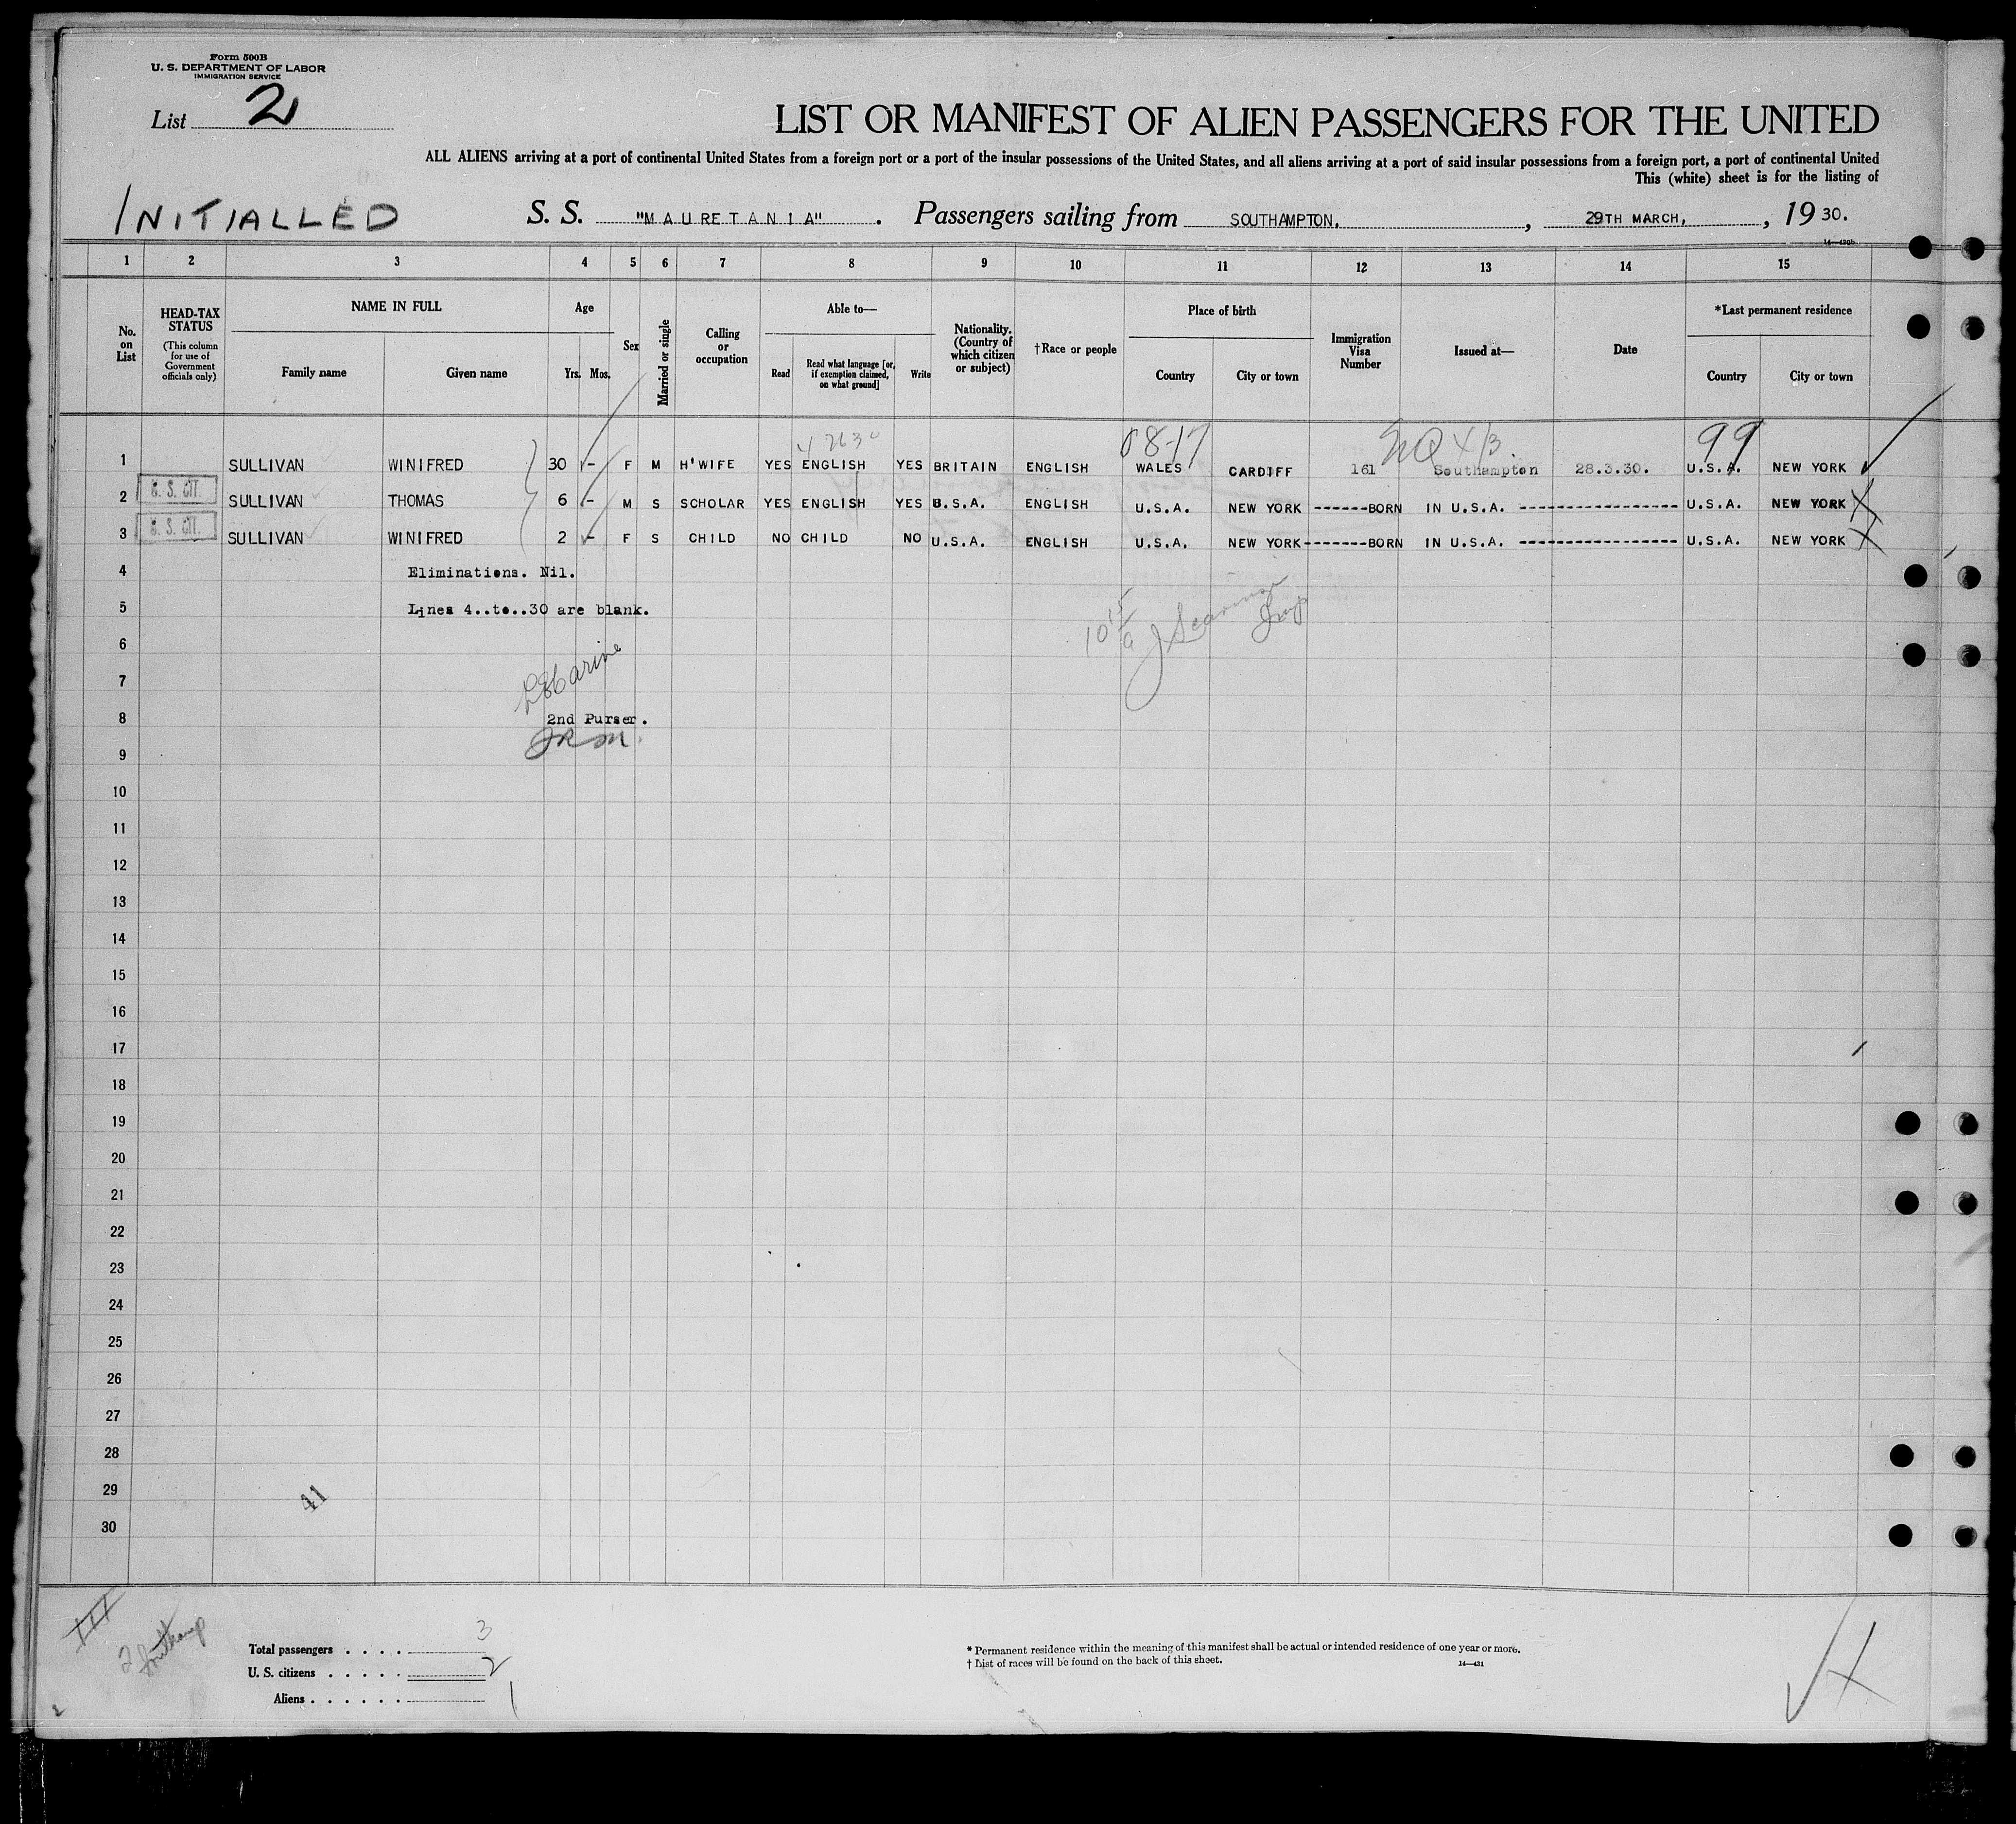 Form 500B
U. S. DEPARTMENT OF LABOR
IMMIGRATION SERVICE
List 2
LIST OR MANIFEST OF ALIEN PASSENGERS FOR THE UNITED
ALL ALIENS arriving at a port of continental United States from a foreign port or a port of the insular possessions of the United States, and all aliens arriving at a port of said insular possessions from a foreign port, a port of continental United
This (white) sheet is for the listing of
INITIALLED
S. S. "MAURETANIA". Passengers sailing from SOUTHAMPTON, 29TH MARCH, , 1930.
1 2 3 4 5 6 7 8 9 10 11 12 13 14 15
No. on List
HEAD-TAX STATUS
(This column for use of Government officials only)
NAME IN FULL
Family name Given name
Age
Yrs. Mos.
Sex
Married or single
Calling or occupation
Able to—
Read Read what language [or, if exemption claimed, on what ground] Write
Nationality. (Country of which citizen or subject)
†Race or people
Place of birth
Country City or town
Immigration Visa Number
Issued at—
Date
*Last permanent residence
Country City or town
08-17 99
1 SULLIVAN WINIFRED 30 - F M H'WIFE YES ENGLISH YES BRITAIN ENGLISH WALES CARDIFF 161 Southampton 28.3.30. U.S.A. NEW YORK
2 U. S. CIT. SULLIVAN THOMAS 6 - M S SCHOLAR YES ENGLISH YES U.S.A. ENGLISH U.S.A. NEW YORK ------BORN IN U.S.A. ----------------- U.S.A. NEW YORK
3 U. S. CIT. SULLIVAN WINIFRED 2 - F S CHILD NO CHILD NO U.S.A. ENGLISH U.S.A. NEW YORK-------BORN IN U.S.A. ----------------- U.S.A. NEW YORK
4 Eliminations. Nil.
5 Lines 4..to..30 are blank.
6
7
8 2nd Purser.
9
10
11
12
13
14
15
16
17
18
19
20
21
22
23
24
25
26
27
28
29 41
30
Total passengers . . . . 3
U. S. citizens . . . . . 2
Aliens . . . . . . 1
* Permanent residence within the meaning of this manifest shall be actual or intended residence of one year or more.
† List of races will be found on the back of this sheet.
14—431